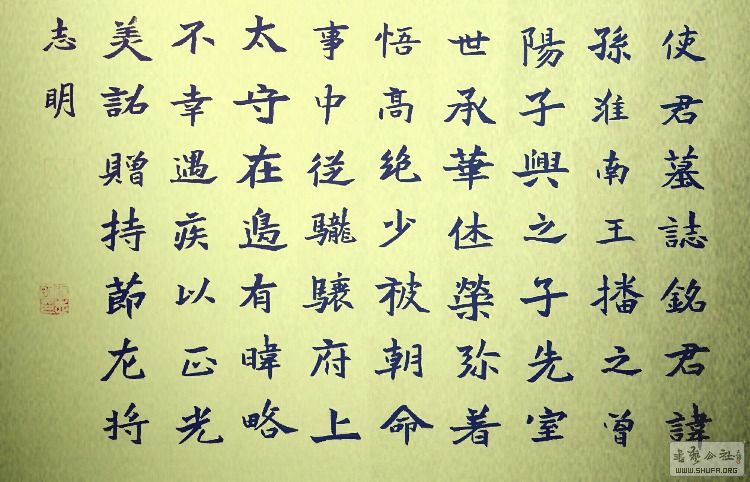 使君墓誌銘君諱
孫淮南王播之曾
陽子興之子先室
世承華休榮弥着
悟高絶少被朝命
事中従驤府上
太守在邊有暐略
不幸遇疾以正光
美詔贈持節左将
志明
WWW.SHUFA.ORG